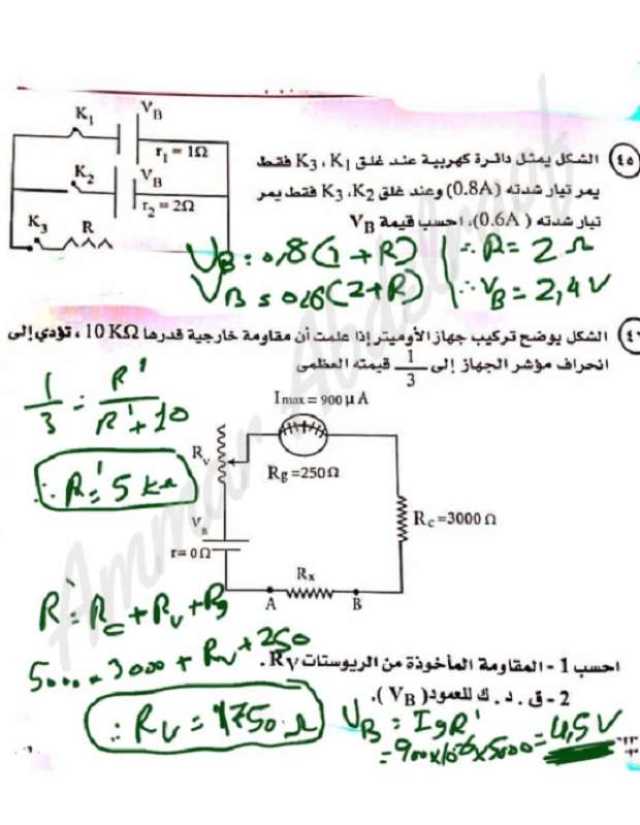 ٤٥ الشكل يمثل دائرة كهربية عند غلق K3 ، K1 فقط
يمر تيار شدته (0.8A) وعند غلق K3 ،K2 فقط يمر
تيار شدته (0.6A)، احسب قيمة VB
K1
VB
r1 = 1Ω
K2
VB
r2 = 2Ω
K3
R
VB = 0,8 (1 + R)
VB = 0,6 (2 + R)
∴ R = 2 Ω
∴ VB = 2,4 V
٤٦ الشكل يوضح تركيب جهاز الأوميتر إذا علمت أن مقاومة خارجية قدرها 10 KΩ ، تؤدي إلى
انحراف مؤشر الجهاز إلى 1/3 قيمته العظمى
1/3 = R'/(R' + 10)
∴ R' = 5 kΩ
Imax = 900 μA
Rv
Rg =250Ω
Rc=3000 Ω
VB
r= 0Ω
Rx
A
B
R' = Rc + Rv + Rg
5000 = 3000 + Rv + 250
∴ Rv = 1750 Ω
احسب 1 - المقاومة المأخوذة من الريوستات Rv.
2 - ق . د . ك للعمود( VB ).
VB = Ig R'
= 900x10^-6 x 5000 = 4,5 V
Ammar Abdelnaby